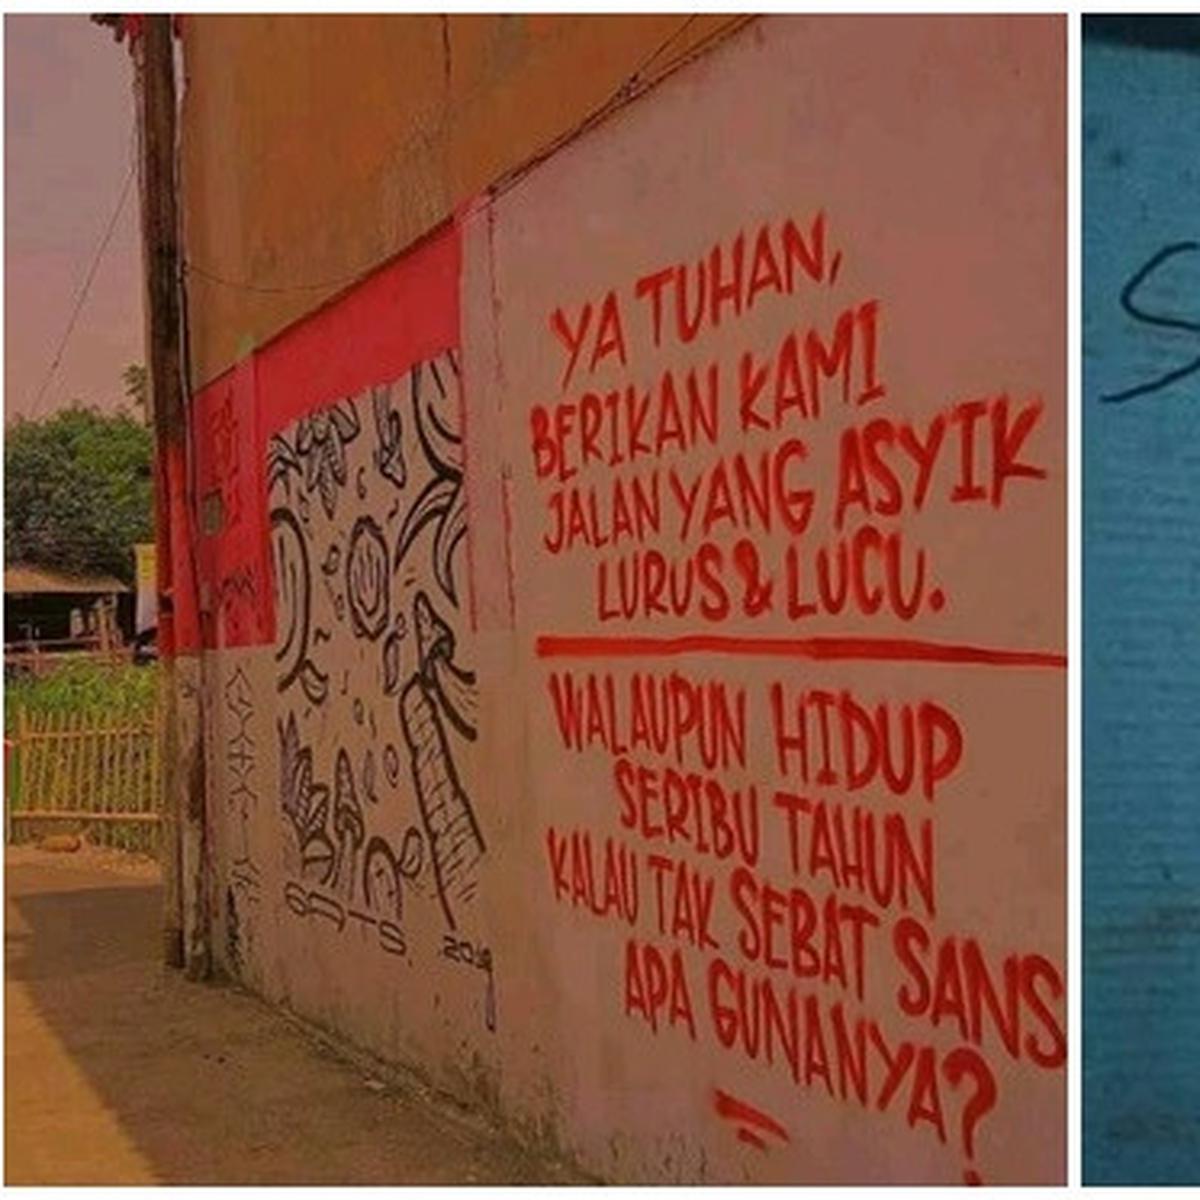 YA TUHAN,
BERIKAN KAMI
JALAN YANG ASYIK
LURUS & LUCU.
WALAUPUN HIDUP
SERIBU TAHUN
KALAU TAK SEBAT SANS
APA GUNANYA?
2019